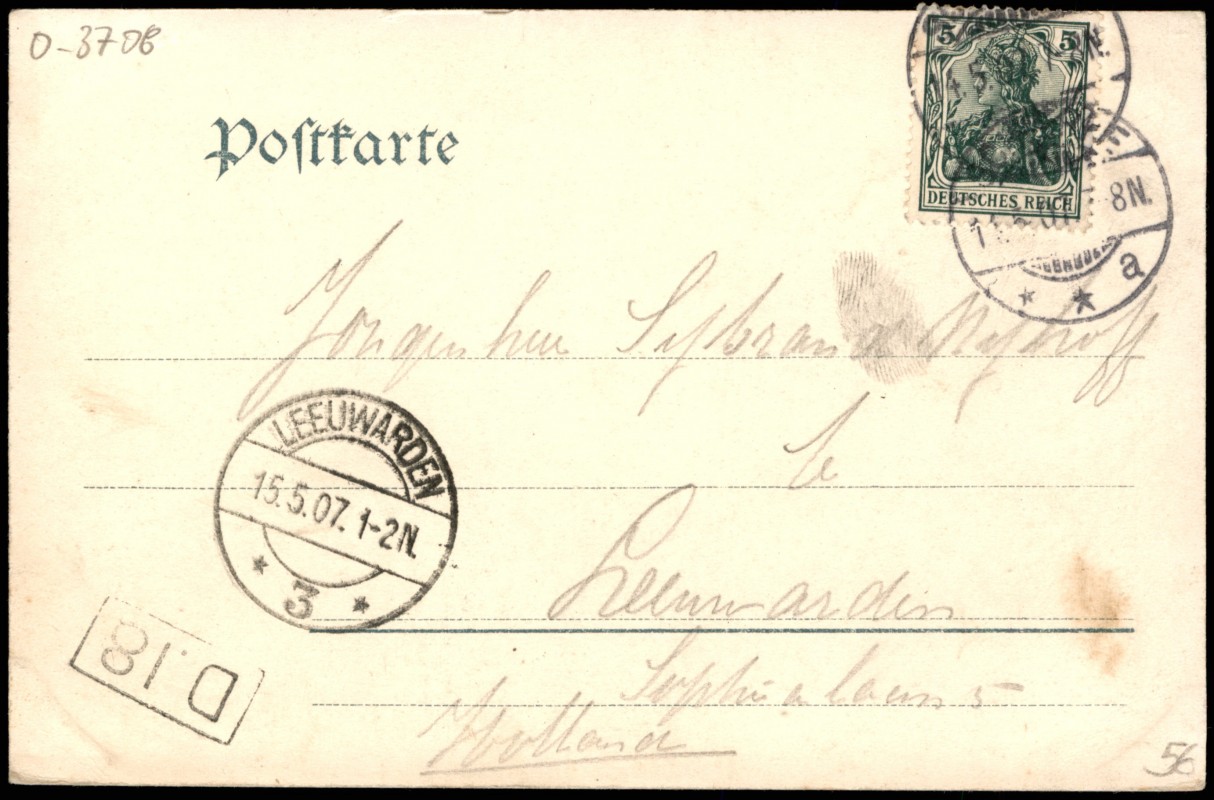 O-3708
Postkarte
5 5
DEUTSCHES REICH
8N.
a
Jongenheer Sijbrand Nijhoff
te
LEEUWARDEN
15.5.07. 1-2N.
3
Leeuwarden
D.18
Sophialaan 5
Holland
56